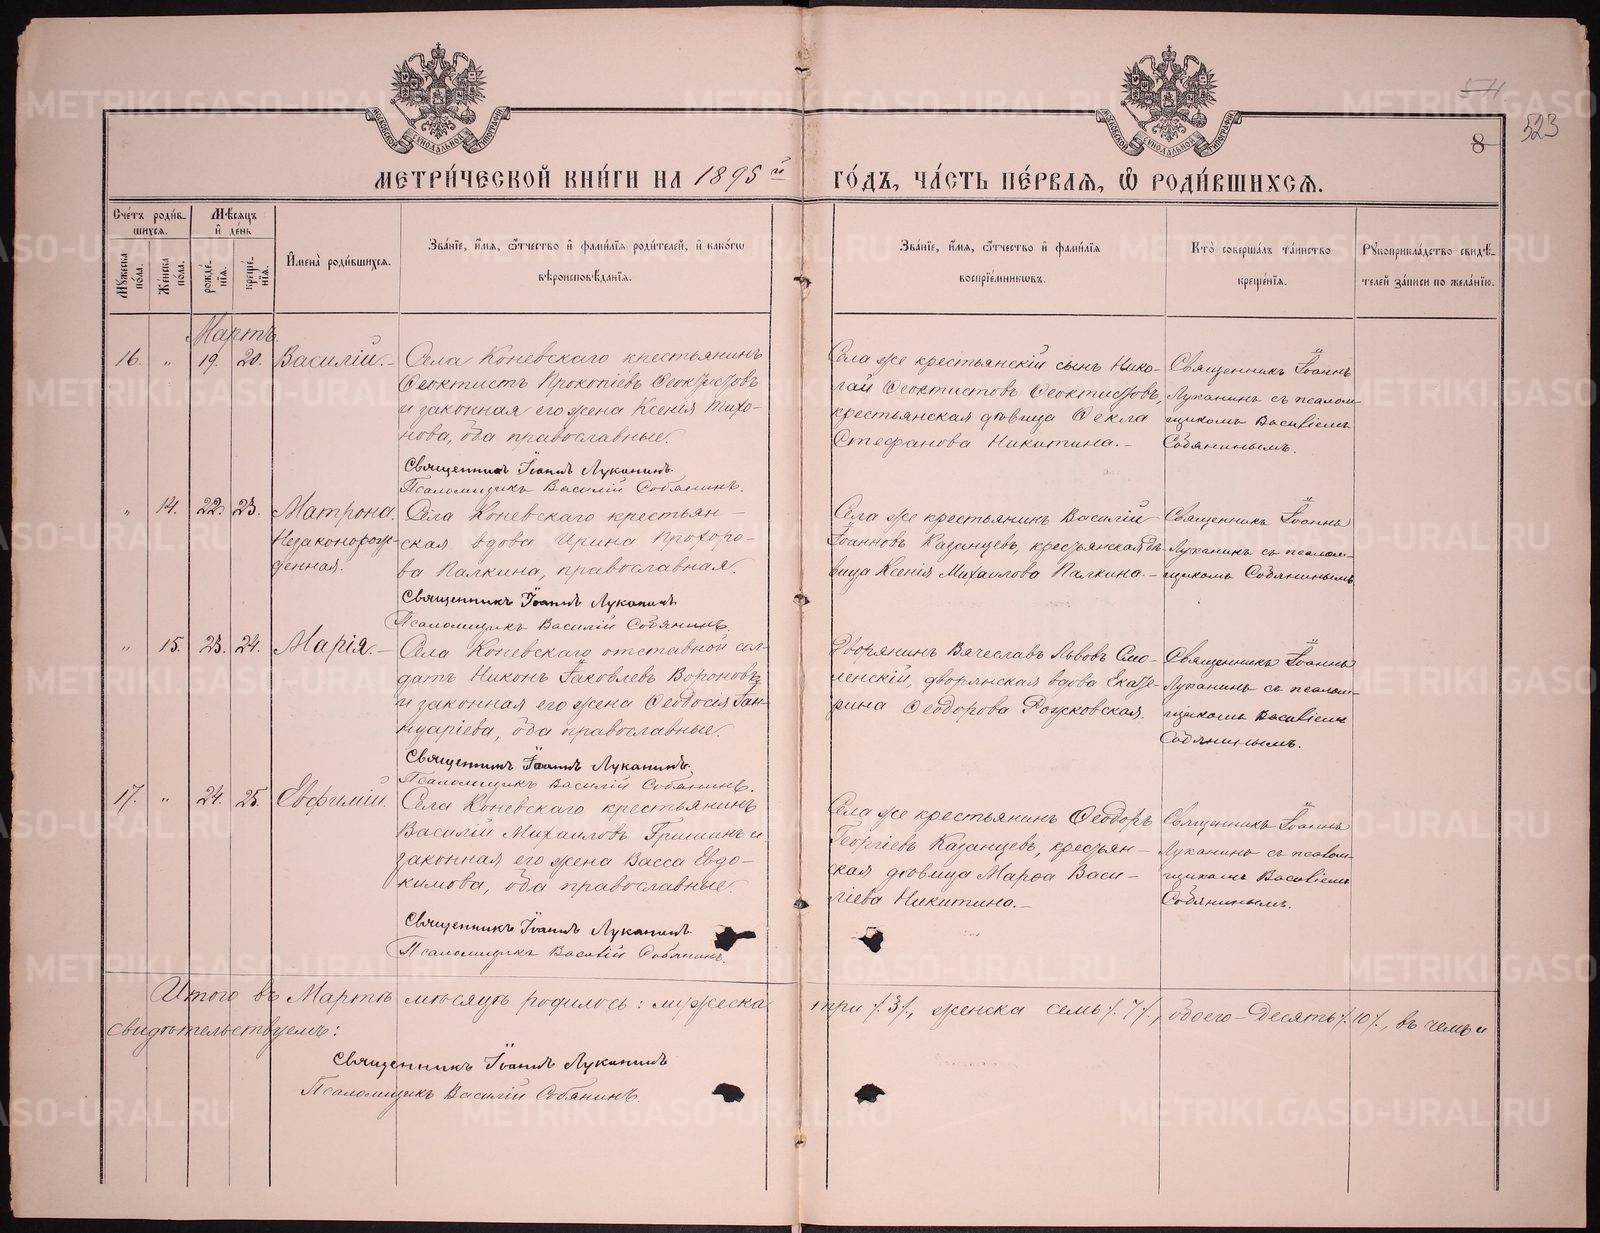 МЕТРИ́ЧЕСКОЙ КНИ́ГИ НА 1895 й ГО́ДЪ, ЧА́СТЬ ПЕ́РВАѦ, Ѽ РОДИ́ВШИХСѦ.
511
523
8
МОСКОВСКОЙ СУНОДАЛЬНОЙ ТИПОГРАФІИ
МОСКОВСКОЙ СУНОДАЛЬНОЙ ТИПОГРАФІИ
Сче́тъ роди́в-
шихсѧ.
Мꙋ́жеска по́ла.
Же́нска по́ла.
Мѣ́сѧцъ
и҆ де́нь
рожде́-
нїѧ.
креще́-
нїѧ.
И҆мена̀ роди́вшихсѧ.
Зва́нїе, и҆́мѧ, ѻ҆́тчество и҆ фами́лїѧ роди́телей, и҆ како́гѡ
вѣроисповѣ́данїѧ.
Зва́нїе, и҆́мѧ, ѻ҆́тчество и҆ фами́лїѧ
воспрїе́мникѡвъ.
Кто̀ соверша́лъ та́инство
креще́нїѧ.
Рꙋкоприкла́дство свидѣ́-
телей за́писи по жела́нїю.
Мартъ
16. " 19. 20. Василій.-
Села Коневскаго крестьянинъ
Ѳеоктистъ Прокопіевъ Ѳеоктистовъ
и законная его жена Ксенія Тихо-
нова, оба православные.
Священникъ Іоаннъ Луканинъ.
Псаломщикъ Василій Собянинъ.
Села же крестьянскій сынъ Нико-
лай Ѳеоктистовъ Ѳеоктистовъ,
крестьянская дѣвица Ѳекла
Стефанова Никитина.-
Священникъ Іоаннъ
Луканинъ съ псалом-
щикомъ Василіемъ
Собянинымъ.
" 14. 22. 23. Матрона.
Незаконорож-
денная.
Села Коневскаго крестьян-
ская вдова Ирина Прохоро-
ва Палкина, православная.
Священникъ Іоаннъ Луканинъ
Псаломщикъ Василій Собянинъ.
Села же крестьянинъ Василій
Іоанновъ Казанцевъ, крестьянская дѣ-
вица Ксенія Михаилова Палкина.-
Священникъ Іоаннъ
Луканинъ съ псалом-
щикомъ Собянинымъ
" 15. 23. 24. Марія.-
Села Коневскаго отставной сол-
датъ Никонъ Іаковлевъ Вороновъ
и законная его жена Ѳеодосія Іан-
нуаріева, оба православные.
Священникъ Іоаннъ Луканинъ.
Псаломщикъ Василій Собянинъ.
Дворянинъ Вячеславъ Львовъ Смо-
ленскій, дворянская вдова Екате-
рина Ѳеодорова Рожковская.
Священникъ Іоаннъ
Луканинъ съ псалом-
щикомъ Василіемъ
Собянинымъ.
17. " 24. 25. Евфимій.
Села Коневскаго крестьянинъ
Василій Михаиловъ Гришинъ и
законная его жена Васса Евдо-
кимова, оба православные.
Священникъ Іоаннъ Луканинъ
Псаломщикъ Василій Собянинъ.
Села же крестьянинъ Ѳеодоръ
Георгіевъ Казанцевъ, крестьян-
ская дѣвица Марѳа Васи-
ліева Никитина.-
Священникъ Іоаннъ
Луканинъ съ псалом-
щикомъ Василіемъ
Собянинымъ.
Итого въ Мартѣ мѣсяцѣ родилось: мужеска три /.3/., женска семь /.7/., обоего-десять /.10/., въ чемъ и
свидѣтельствуемъ:
Священникъ Іоаннъ Луканинъ
Псаломщикъ Василій Собянинъ.
METRIKI.GASO-URAL.RU